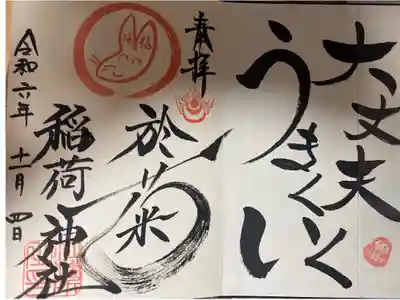 大丈夫
うまくいく
奉拝
於菊
稲荷神社
令和六年 十一月 四日